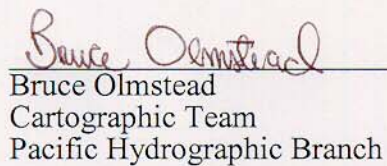 Bruce Olmstead
Bruce Olmstead
Cartographic Team
Pacific Hydrographic Branch